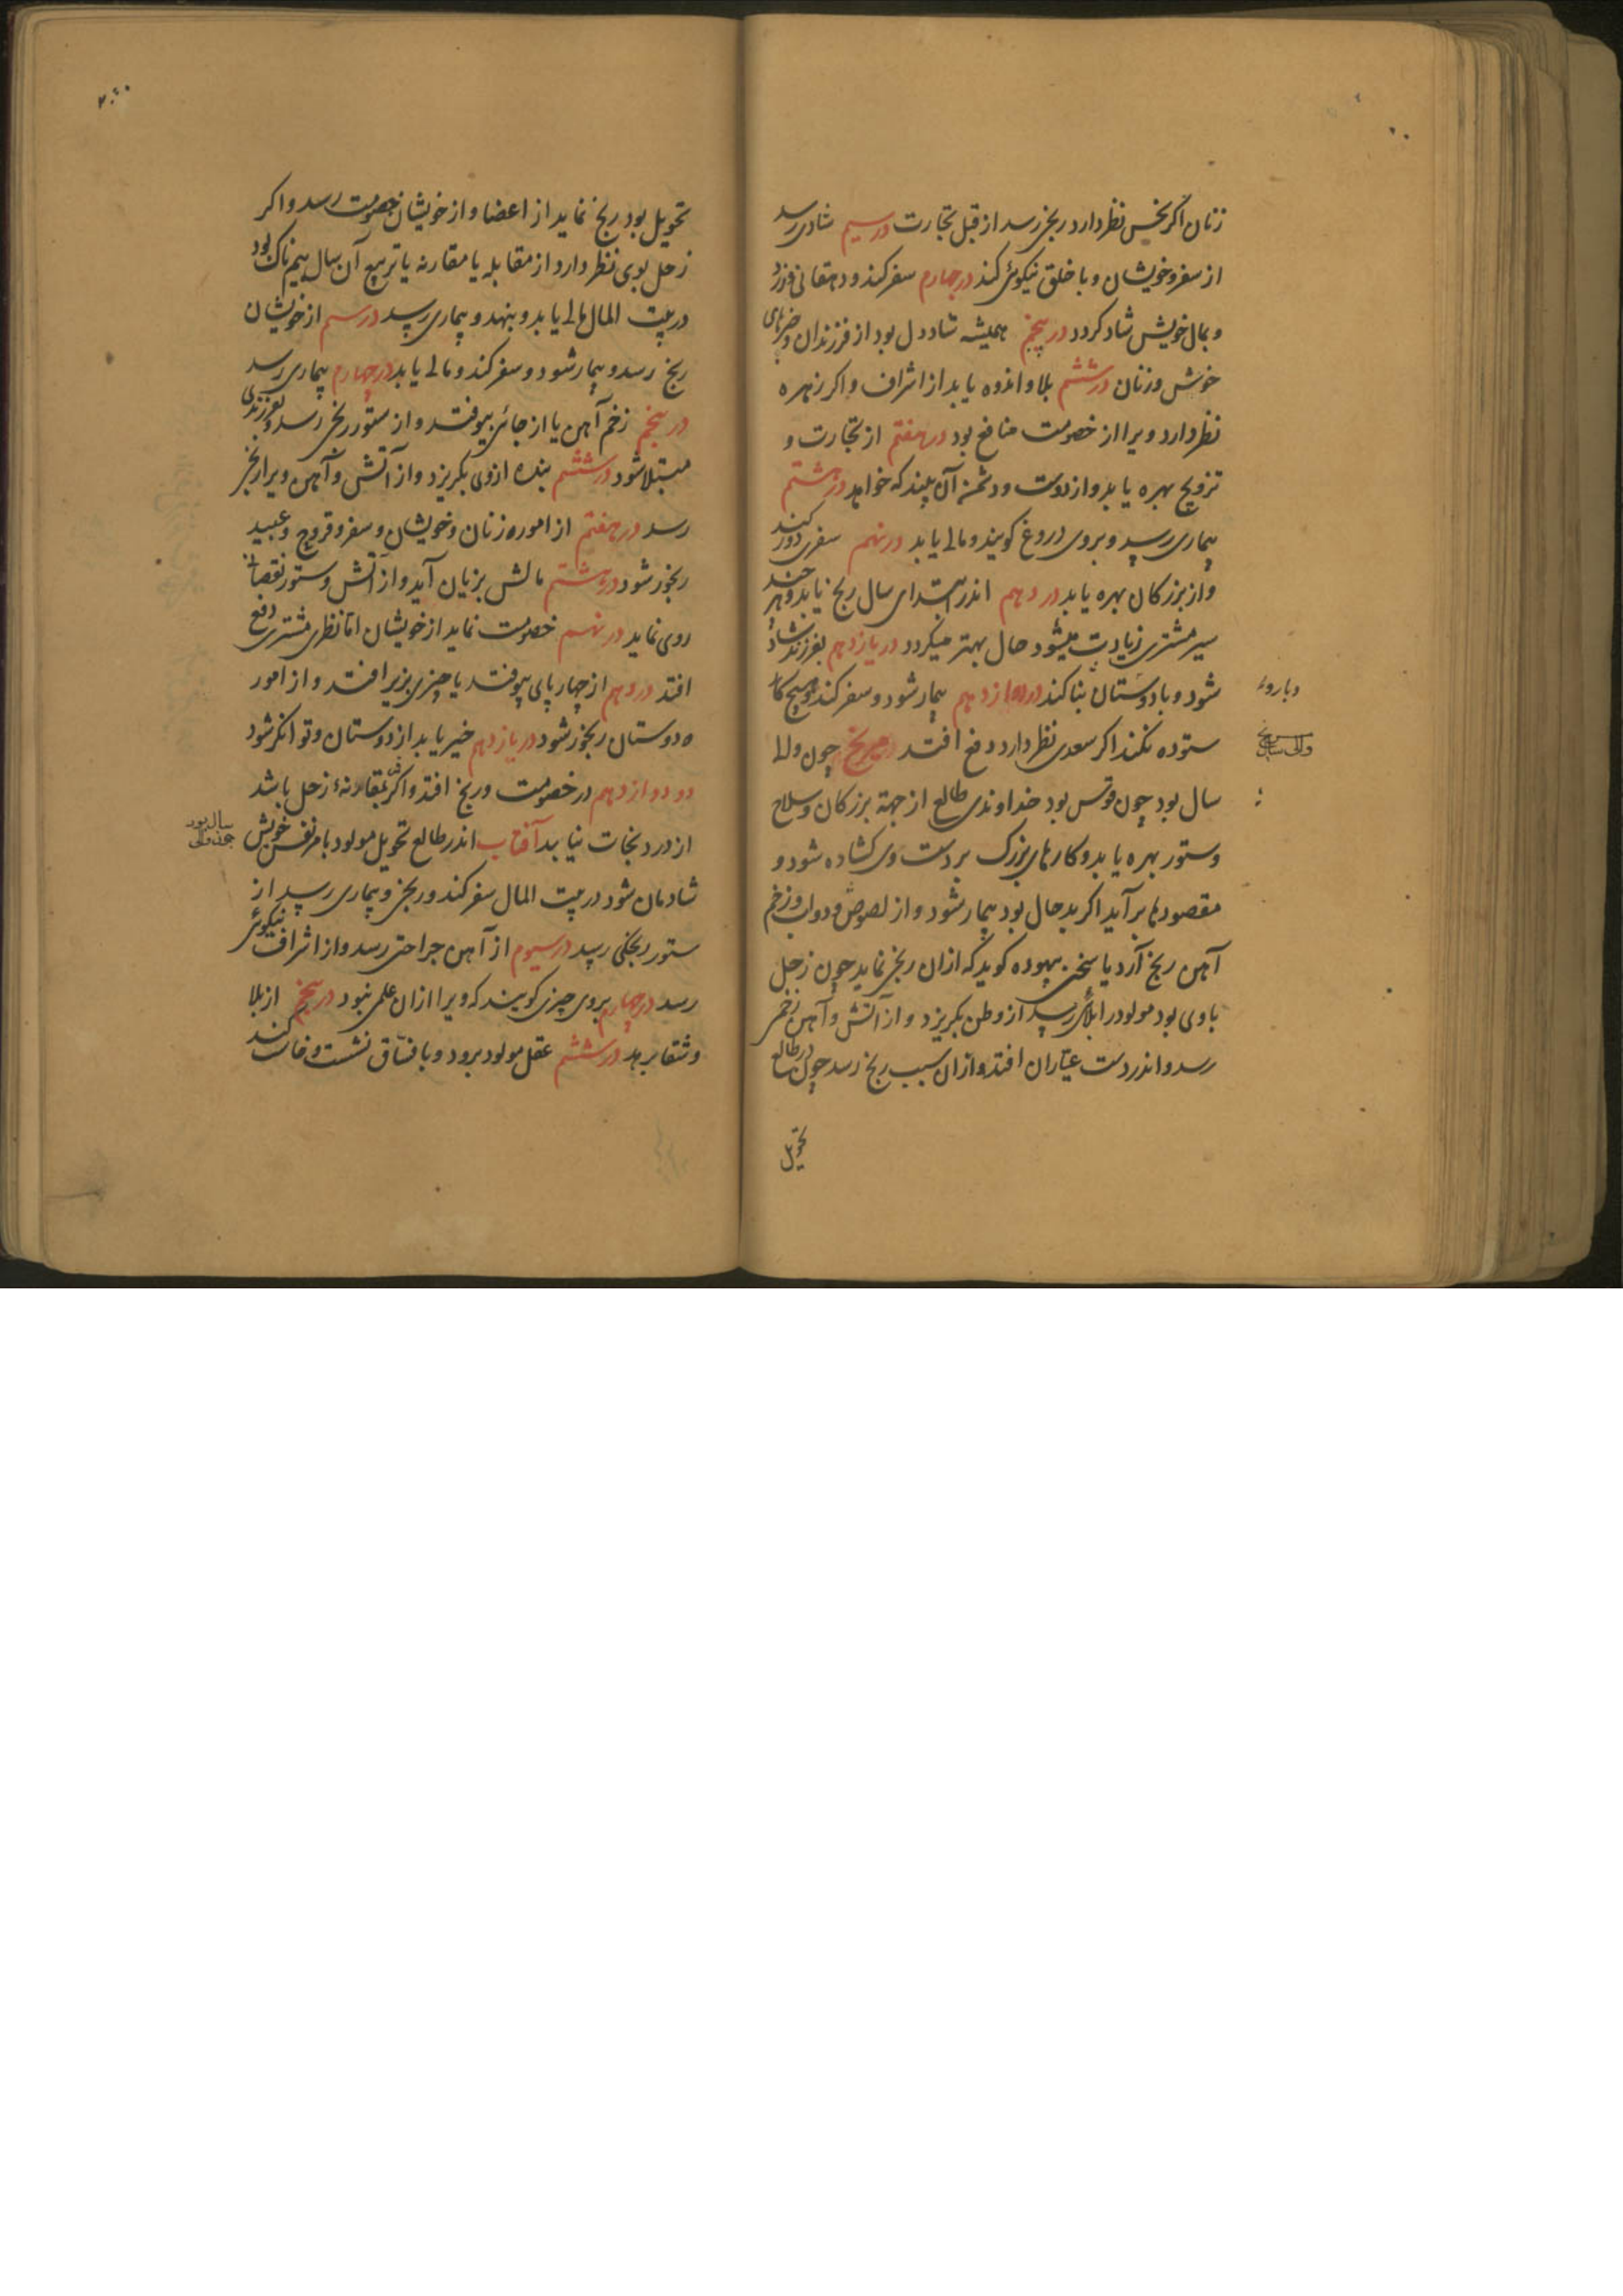 زنان اکر نحس نظر دارد رنجی رسد از قبل تجارت در سیم شادی رسد
از سفر و خویشان و با خلق نیکوئی کند در چهارم سفر کند و دهقانی ورزد
و بمال خویش شاد کردد در پنجم همیشه شاد دل بود از فرزندان و خبرهای
خوش و زنان در ششم بلا و اندوه یابد از اشراف و اکر زهره
نظر دارد ویرا از خصومت منافع بود در هفتم از تجارت و
تزویج بهره یابد و از دوست و دشمن آن بیند که خواهد در هشتم
بیماری رسد و بروی دروغ کویند و مالی یابد در نهم سفری دور کند
و از بزرکان بهره یابد در دهم اندر ابتدای سال رنج یابد و هر چند
سیر مشتری زیادت میشود حال بهتر میکردد در یازدهم بفرزند شاد
شود و با دوستان بنا کند در دوازدهم بیمار شود و سفر کند و هیچ کار
ستوده نکند اکر سعدی نظر دارد دفع افتد مریخ چون والی
سال بود چون قوس بود خداوندی طالع از جهة بزرکان و سلاح
و ستور بهره یابد و کارهای بزرک بر دست وی کشاده شود و
مقصودها برآید اکر بد حال بود بیمار شود و از لصوص و دواب و زخم
آهن رنج آرد یا سخن بیهوده کوید که از ان رنجی نماید چون زحل
باوی بود مولود را بلائی رسد از وطن بکریزد و از آتش و آهن زخمی
رسد و اندر دست عیاران افتد و از ان سبب رنج رسد چون در طالع
تحویل
والی سال
تحویل بود رنج نماید از اعضا و از خویشان خصومت رسد و اکر
زحل بوی نظر دارد از مقابله یا مقارنه یا تربیع آن سال بیم ناک بود
در بیت المال مالی یابد و بنهد و بیماری رسد در سیم از خویشان
رنج رسد و بیمار شود و سفر کند و مالی یابد در چهارم بیماری رسد
در پنجم زخم آهن یا از جائی بیوفتد و از ستور رنجی رسد و بفرزندی
مبتلا شود در ششم بنده از وی بکریزد و از آتش و آهن ویرا رنجی
رسد در هفتم از امور زنان و خویشان و سفر و فروج و عبید
رنجور شود در هشتم مالش بزیان آید و از آتش و ستور نقصان
روی نماید در نهم خصومت نماید از خویشان اما نظر مشتری دفع
افتد در دهم از چهار پای بیوفتد یا چیزی بزیر افتد و از امور
دوستان رنجور شود در یازدهم خیر یابد از دوستان و توانکر شود
در دوازدهم در خصومت و رنج افتد و اکر بمقارنهٔ زحل باشد
از درد نجات نیابد آفتاب اندر طالع تحویل مولود با مر نفس خویش
شادمان شود در بیت المال سفر کند و رنجی و بیماری رسد از
ستور رنجکی رسد در سیوم از آهن جراحتی رسد و از اشراف نیکوئی
رسد در چهارم بروی چیزی کویند که ویرا از ان علمی نبود در پنجم از بلا
و شقا برهد در ششم عقل مولود برود و با فساق نشست و خاست کند